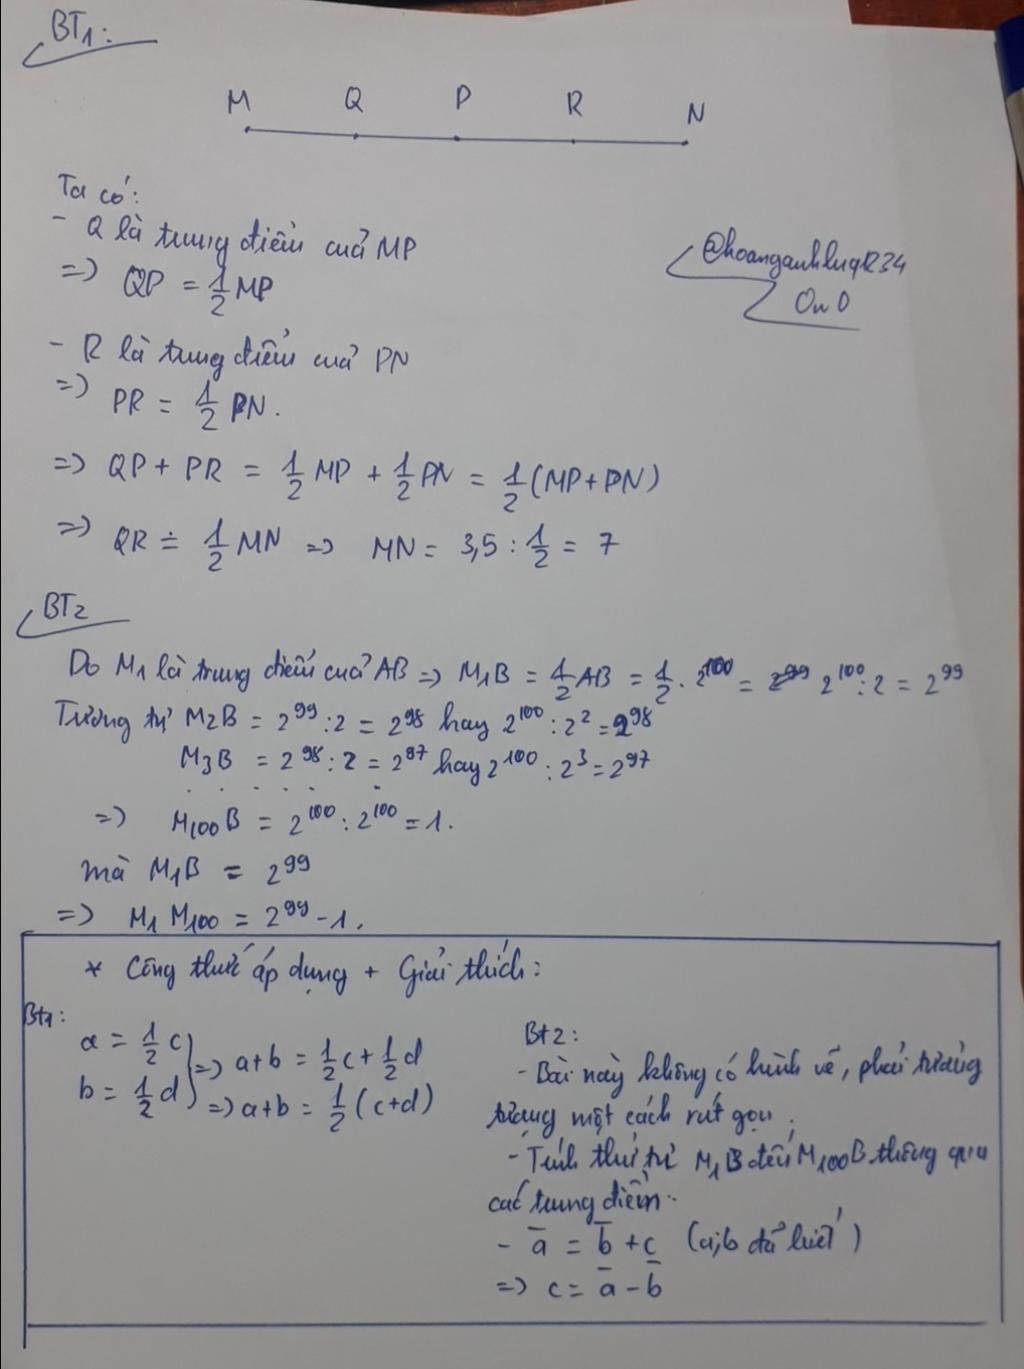 BT1:
M Q P R N
Ta có:
- Q là trung điểm của MP
=> QP = 1/2 MP
@hoanganhluq1234
OwO
- R là trung điểm của PN
=> PR = 1/2 PN.
=> QP + PR = 1/2 MP + 1/2 PN = 1/2 (MP + PN)
=> QR = 1/2 MN => MN = 3,5 : 1/2 = 7
BT2
Do M1 là trung điểm của AB => M1B = 1/2 AB = 1/2 . 2^100 = 2^100 : 2 = 2^99
Tương tự M2B = 2^99 : 2 = 2^98 hay 2^100 : 2^2 = 2^98
M3B = 2^98 : 2 = 2^97 hay 2^100 : 2^3 = 2^97
. . . . . .
=> M100B = 2^100 : 2^100 = 1.
mà M1B = 2^99
=> M1 M100 = 2^99 - 1.
* Công thức áp dụng + Giải thích:
Bt1:
a = 1/2 c
b = 1/2 d
=> a+b = 1/2 c + 1/2 d
=> a+b = 1/2 (c+d)
Bt2:
- Bài này không có hình vẽ, phải tưởng
tượng một cách rút gọn.
- Tính thứ tự M1B đến M100B thông qua
các trung điểm.
- a = b + c (a;b đã biết)
=> c = a - b